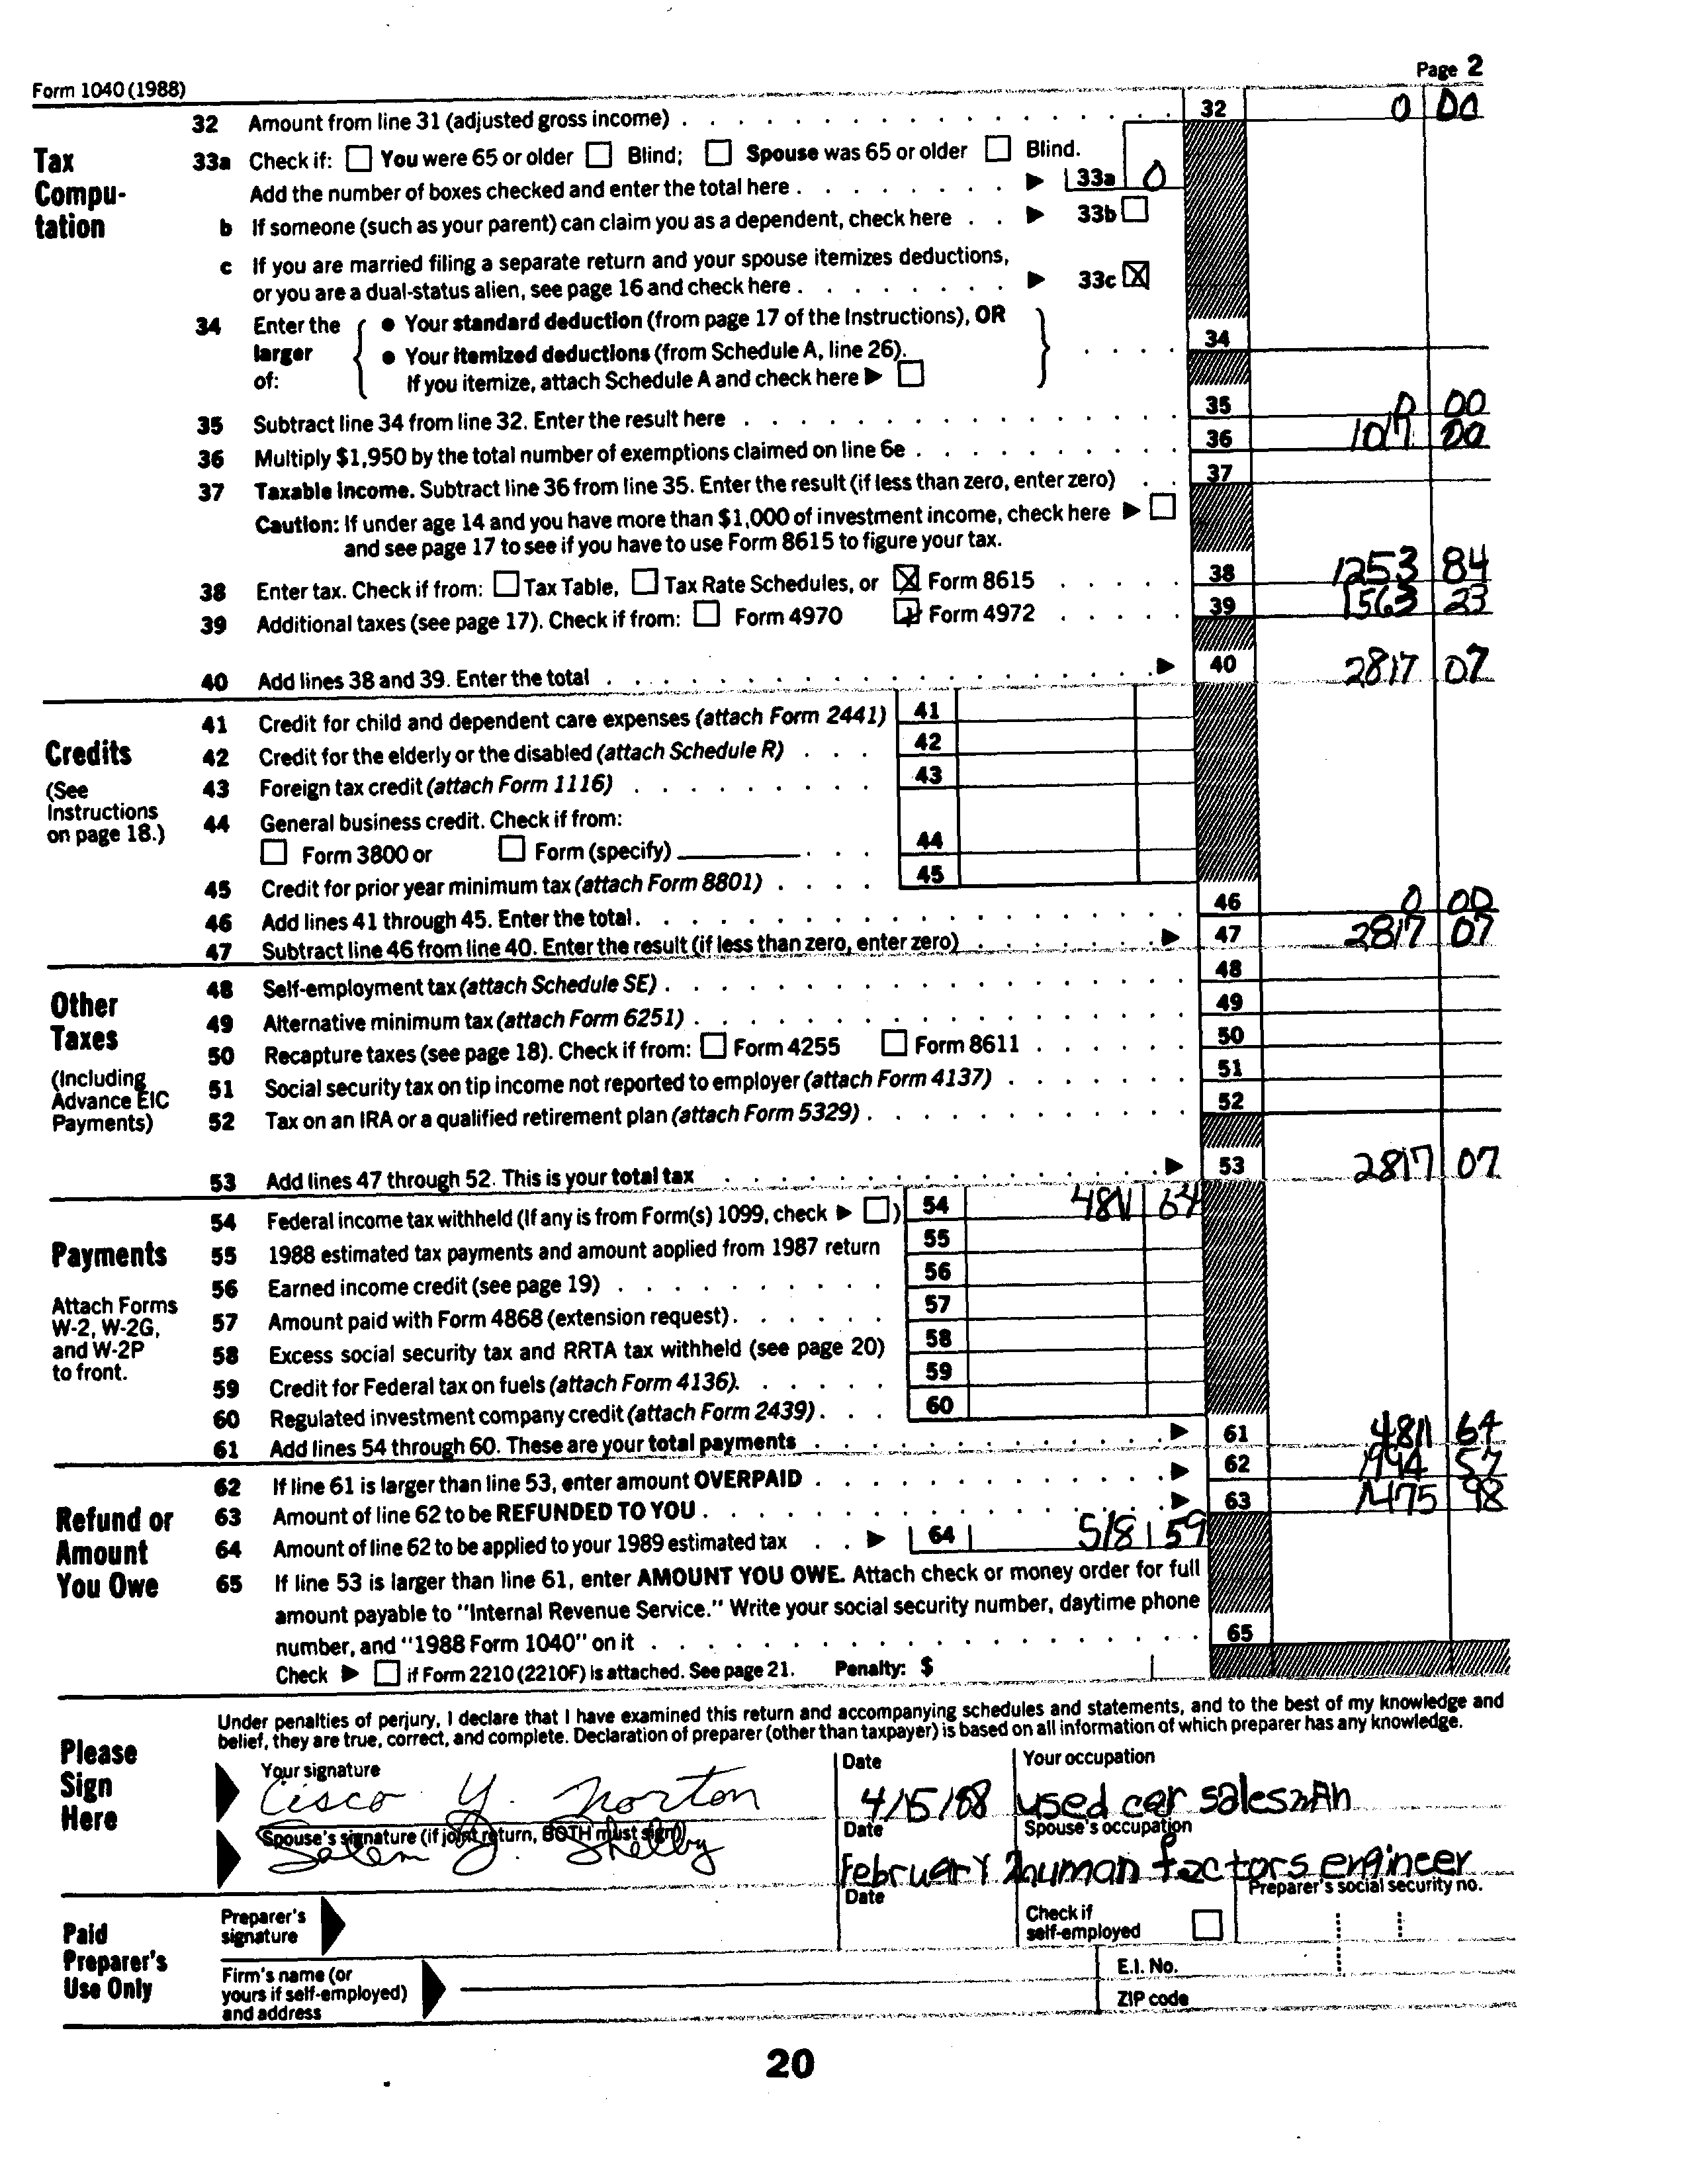 Form 1040 (1988) Page 2
Tax Compu-tation
32 Amount from line 31 (adjusted gross income) 32 0 00
33a Check if: You were 65 or older Blind; Spouse was 65 or older Blind.
Add the number of boxes checked and enter the total here 33a 0
b If someone (such as your parent) can claim you as a dependent, check here 33b
c If you are married filing a separate return and your spouse itemizes deductions,
or you are a dual-status alien, see page 16 and check here 33c X
34 Enter the larger of: • Your standard deduction (from page 17 of the Instructions), OR
• Your itemized deductions (from Schedule A, line 26). 34
If you itemize, attach Schedule A and check here
35 Subtract line 34 from line 32. Enter the result here 35 0 00
36 Multiply $1,950 by the total number of exemptions claimed on line 6e 36 1017 00
37 Taxable income. Subtract line 36 from line 35. Enter the result (if less than zero, enter zero) 37
Caution: If under age 14 and you have more than $1,000 of investment income, check here
and see page 17 to see if you have to use Form 8615 to figure your tax.
38 Enter tax. Check if from: Tax Table, Tax Rate Schedules, or X Form 8615 38 1253 84
39 Additional taxes (see page 17). Check if from: Form 4970 Form 4972 39 1563 23
40 Add lines 38 and 39. Enter the total 40 2817 07
Credits
(See Instructions on page 18.)
41 Credit for child and dependent care expenses (attach Form 2441) 41
42 Credit for the elderly or the disabled (attach Schedule R) 42
43 Foreign tax credit (attach Form 1116) 43
44 General business credit. Check if from:
Form 3800 or Form (specify) 44
45 Credit for prior year minimum tax (attach Form 8801) 45
46 Add lines 41 through 45. Enter the total. 46 0 00
47 Subtract line 46 from line 40. Enter the result (if less than zero, enter zero) 47 2817 07
Other Taxes
(Including Advance EIC Payments)
48 Self-employment tax (attach Schedule SE) 48
49 Alternative minimum tax (attach Form 6251) 49
50 Recapture taxes (see page 18). Check if from: Form 4255 Form 8611 50
51 Social security tax on tip income not reported to employer (attach Form 4137) 51
52 Tax on an IRA or a qualified retirement plan (attach Form 5329) 52
53 Add lines 47 through 52. This is your total tax 53 2817 07
Payments
Attach Forms W-2, W-2G, and W-2P to front.
54 Federal income tax withheld (If any is from Form(s) 1099, check ) 54 4811 64
55 1988 estimated tax payments and amount applied from 1987 return 55
56 Earned income credit (see page 19) 56
57 Amount paid with Form 4868 (extension request) 57
58 Excess social security tax and RRTA tax withheld (see page 20) 58
59 Credit for Federal tax on fuels (attach Form 4136). 59
60 Regulated investment company credit (attach Form 2439) 60
61 Add lines 54 through 60. These are your total payments 61 4811 64
62 If line 61 is larger than line 53, enter amount OVERPAID 62 1994 57
63 Amount of line 62 to be REFUNDED TO YOU 63 1475 98
64 Amount of line 62 to be applied to your 1989 estimated tax 64 518 59
Refund or Amount You Owe
65 If line 53 is larger than line 61, enter AMOUNT YOU OWE. Attach check or money order for full
amount payable to "Internal Revenue Service." Write your social security number, daytime phone
number, and "1988 Form 1040" on it 65
Check if Form 2210 (2210F) is attached. See page 21. Penalty: $
Please Sign Here
Under penalties of perjury, I declare that I have examined this return and accompanying schedules and statements, and to the best of my knowledge and
belief, they are true, correct, and complete. Declaration of preparer (other than taxpayer) is based on all information of which preparer has any knowledge.
Your signature Date Your occupation
Cisco Y. Norton 4/15/88 used car salesman
Spouse's signature (if joint return, BOTH must sign) Date Spouse's occupation
Salem J. Shelby February 2 human factors engineer
Paid Preparer's Use Only
Preparer's signature Date Check if self-employed Preparer's social security no.
Firm's name (or yours if self-employed) and address E.I. No.
ZIP code
20